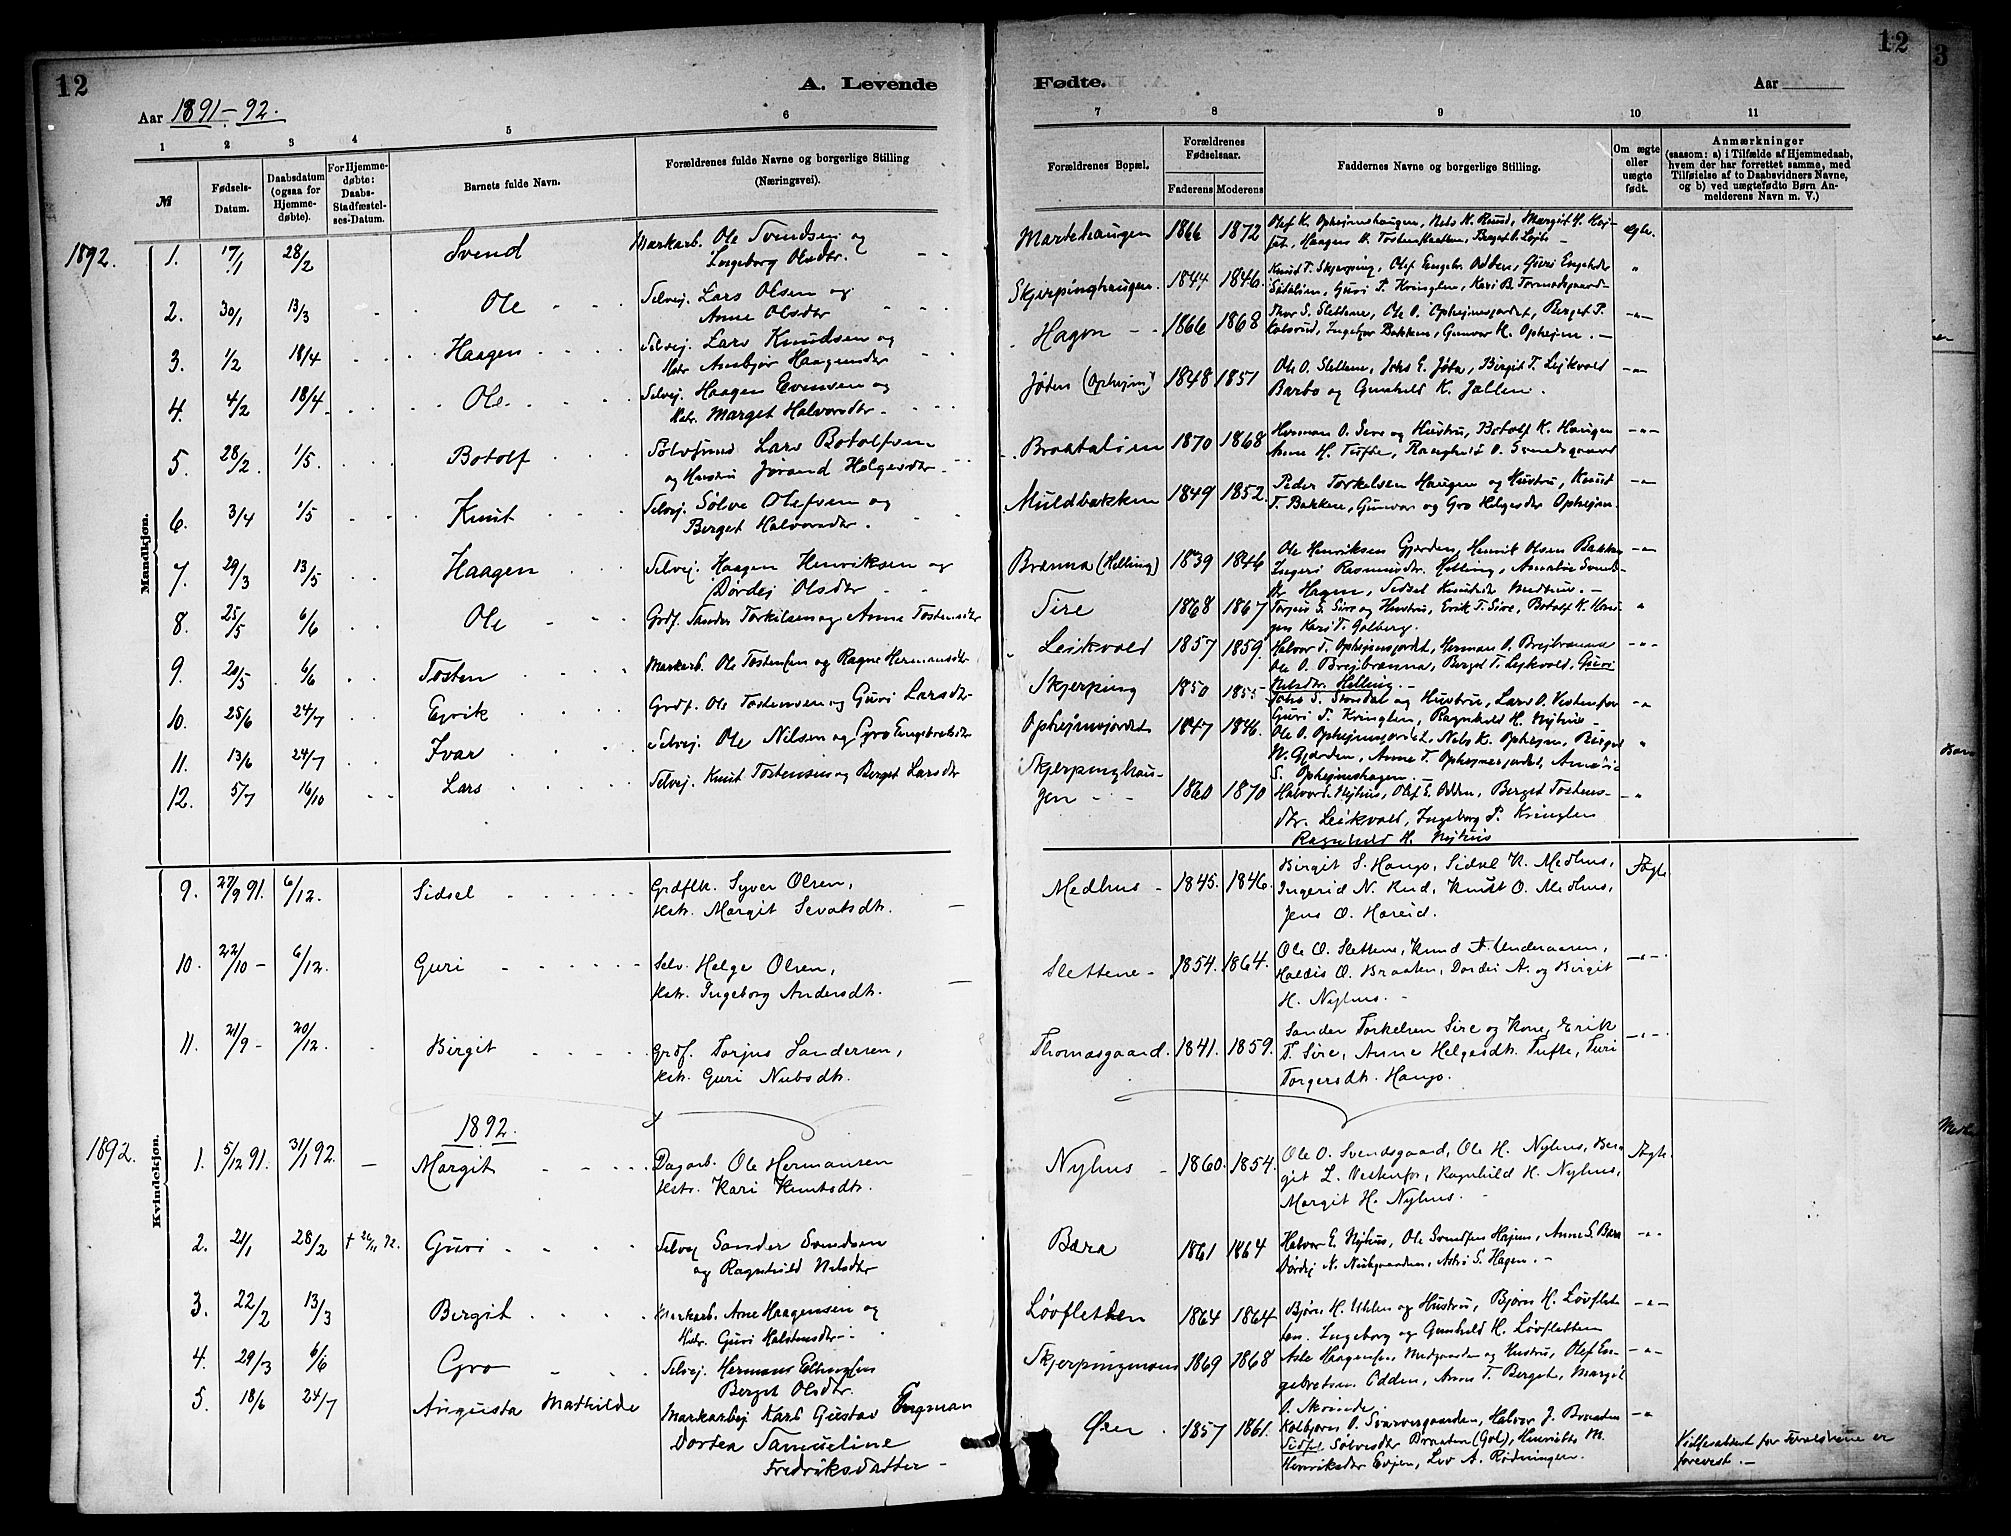 12
A. Levende
Aar 1891-92.
1 2 3 4 5 6
№
Fødsels-Datum.
Daabsdatum (ogsaa for Hjemmedøbte).
For Hjemmedøbte: Daabs-Stadfæstelses-Datum.
Barnets fulde Navn.
Forældrenes fulde Navne og borgerlige Stilling (Næringsvei).
Mandkjøn.
1892. 1. 17/1 28/2 Svend Markarb. Ole Svendsen og
Ingeborg Olsdtr.
2. 30/1 13/3 Ole Selvej. Lars Olsen og
Anne Olsdtr
3. 1/2 18/4 Haagen Selvej. Lars Knudsen og
Hstr Haagensdtr
4. 4/2 18/4 Ole Selvej. Haagen Evensen og
Hstr. Marget Halvorsdtr
5. 28/2 1/5 Botolf Lars Botolfsen
og Hustru Jørand Helgesdtr
6. 3/4 1/5 Knut Selvej. Sølve Olefsen og
Berget Halvorsdtr.
7. 29/3 13/5 Haagen Selvej. Haagen Henriksen og
Dørdej Olsdtr
8. 25/5 6/6 Ole Grdf. Sander Torkilsen og Anne Tostensdtr
9. 20/5 6/6 Tosten Markarb. Ole Tostensen og Ragne Hermansdtr
10. 25/6 24/7 Eyrik Grdf. Ole Tostensen og Guri Larsdtr
11. 13/6 24/7 Ivar Selvej. Ole Nilsen og Gro Engebretsdtr
12. 5/7 16/10 Lars Selvej. Knut Tostensen og Berget Larsdtr
Kvindekjøn.
9. 27/9 91. 6/12. Sidsel Grdflk. Syver Olsen,
Hstr. Margit Sevatsdtr.
10. 22/10 - 6/12. Guri Selv. Helge Olsen,
Hstr. Ingeborg Andersdtr.
11. 21/9 - 20/12. Birgit Grdf. Torjus Sandersen,
Hstr. Guri Nubsdtr.
1892.
1892. 1. 5/12 91. 31/1 92. - Margit Dagarb. Ole Hermansen
Hstr. Kari Knutsdtr.
2. 21/1 28/2 + 26/11 92. Guri Selvej Sander Svendsen
og Ragnhild Nilsdtr
3. 22/2 13/3 Bergit Markarb. Arne Haagensen og
Hstr. Guri Halstensdtr
4. 29/3 6/6 Gro Selvej. Herman
Berget Olsdtr.
5. 18/6 24/7 Augusta Mathilde Markarbej Karl Gustav Engman
Dortea Samueline
Fredriksdatter -
12
Fødte.
Aar
7 8 9 10 11
Forældrenes Bopæl.
Forældrenes Fødselsaar.
Faderens Moderens
Faddernes Navne og borgerlige Stilling.
Om ægte eller uægte født.
Anmærkninger
(saasom: a) i Tilfælde af Hjemmedaab, hvem der har forrettet samme, med Tilføielse af to Daabsvidners Navne, og b) ved uægtefødte Børn Anmelderens Navn m. V.)
Martehaugen 1866 1872 Olef K. Ophejmshaugen, Nels N. Ruud, Margit H.
Haagen O. Berget O.
Skjerpinghaugen. 1844 1846. Knud T. Skjerping, Olef Engebr. Odden, Guri Engebdtr
Guri T. Kringlen, Kari B.
Hagon 1866 1868 Thor S. Slettene, Ole O. Ophejmsjordet, Berget T.
Ingebjør Bakken, Gunvor H. Ophejm. -
Jøten (Ophejm) 1848 1851 Ole O. Slettene, Johs E. Jøta, Birgit T. Lejkvald
Barbo og Gunhild K. Jallen.
Braatalien 1870 1868 Herman O. Sire og Hustru, Botolf K. Haugen
Anne H. Tufte, Ragnhild O. Svendsgaard
Muldbakken 1849 1852. Peder Torkelsen Haugen og Hustru, Knut
T. Bakken, Gunvor og Gro Helgesdtr Ophejm.
Brænna (Helling) 1839 1846 Ole Henriksen Gjørden, Henrik Olsen Bakken
Ingeri Rasmusdtr. Helling,
Hagen, Sidsel Knudsdtr Medhus. -
Sire 1868 1867 Torjus S. Sire og Hustru, Erik T. Sire, Botolf K. Hau-
gen Kari T. Golberg.
Leikvald 1857 1859. Halvor T. Ophejmsjordet, Herman O. Brejbrænna
Ole O. Brejbrænna, Berget T. Lejkvald, Guri
Nelsdtr. Helling. -
Skjerping 1850 1855 Johs S. og Hustru, Lars O. Vestenfor
Guri T. Kringlen, Ragnhild H. Nyhus -
Ophejmsjordet 1847 1846. Ole O. Ophejmsjordet, Nels K. Ophejm, Berget
N. Gjørden, Anne T. Ophejmsjordet,
S. Ophejmshagen.
Skjerpinghau-
gen 1860 1870 Halvor Nyhus, Olef E. Odden, Berget Tostens-
dtr. Leikvald, Ingeborg T. Kringlen
Ragnhild H. Nyhus
Medhus - 1845. 1846. Birgit S. Haugo, Sidsel K. Medhus, Ægte
Ingerid N. Rud, Knut O. Medhus,
Jens O. Hareid.
Slettene - 1854. 1864. Ole O. Slettene, Knud A. Underaasen,
Haldis O. Braaten, Dordei A. og Birgit
H. Nyhus. -
Thomasgaard. 1841. 1859. Sander Torkelsen Sire og Kone, Erik
T. Sire, Anne Helgesdtr. Tufte, Turi
Torgersdtr. Haugo.
Nyhus - 1860. 1854. Ole O. Svendsgaard, Ole H. Nyhus, Ber- Ægte
git L. Vestenfor, Ragnhild H. Nyhus,
Margit H. Nyhus. -
Bæra 1861 1864 Halvor E. Nyhus, Ole Svendsen Hagen, Anne S. Bæra
Dørdej N. Nubgaarden, Astri S. Hagen. -
Løvfletten 1864 1864 Bjørn H. Uhlen og Hustru, Bjørn H. Løvflet-
ten. Ingeborg og Gunhild H. Løvfletten
Skjerpingmoen 1869 1868 Asle Haagensen Medgaarden og Hustru, Olef En-
gebretsen Odden, Anne T. Berget, Margit
O.
Øen 1857 1861. Kolbjørn O. Halvor J. Braaten
Sidsel Sølvesdtr Braaten (Gol), Henriette M.
Henriksdtr Evjen, Liv A. Rødningen. Vielsesattest for Forældrene er
forevist. -
3